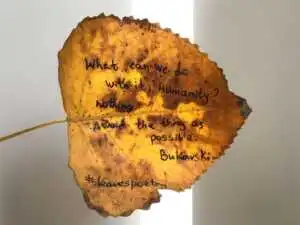 What can we do
with it, Humanity?
Nothing.
Avoid the thing as
possible.
Bukowski